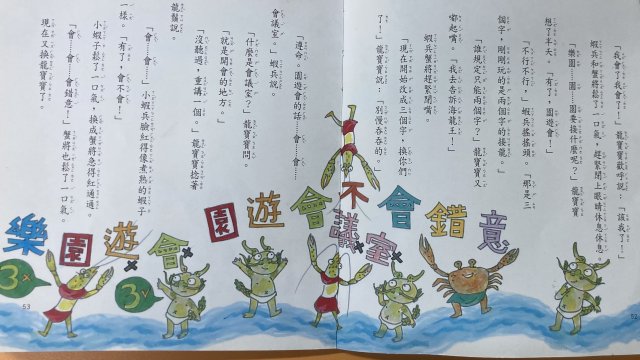 「我會了！我會了！」龍寶寶歡呼說：「該我了！」
蝦兵和蟹將鬆了一口氣，趕緊閉上眼睛休息休息。
「樂園……園……園要接什麼呢？」龍寶寶
想了半天。「有了，園遊會！」
「不行不行，」蝦兵搖搖頭。「那是三
個字，剛剛玩的是兩個字的接龍。」
「誰規定只能兩個字？」龍寶寶又
嘟起嘴。「我去告訴海龍王！」
蝦兵蟹將趕緊閉嘴。
「現在開始改成三個字，換你們
了！」龍寶寶說：「別慢吞吞的。」
52
「遵命。園遊會的話……會……會……
會議室。」蝦兵說。
「什麼是會議室？」龍寶寶問。
「就是開會的地方。」
「沒聽過，重講一個。」龍寶寶捻著
龍鬚說。
「會……會……」小蝦兵臉紅得像煮熟的蝦子
一樣。「有了，會不會！」
小蝦子鬆了一口氣，換成蟹將急得紅通通。
「會……會……會錯意！」蟹將也鬆了一口氣。
現在又換龍寶寶了。
樂園遊會
園遊會議室
不會錯意
3
3
53